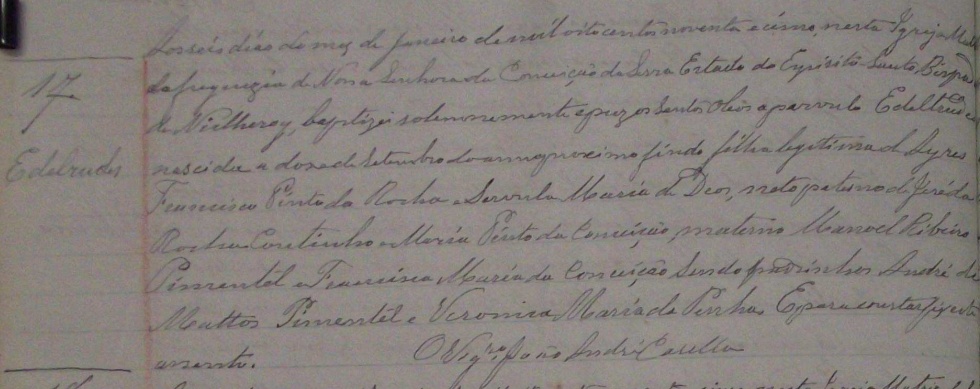 17
Edeltrudes
Aos seis dias do mez de Janeiro de mil oitocentos noventa e cinco, nesta Igreja Matriz
da freguezia de Nossa Senhora da Conceição da Serra Estado do Espirito Santo, Bispado
de Nictheroy, baptizei solemnemente e puz os Santos Oleos a parvula Edeltrudes
nascida a doze de Setembro do anno proximo findo, filha legitima de Lyres
Francisco Pinto da Rocha e Servula Maria de Deos, neto paterno de José da
Rocha Coutinho e Maria Pinto da Conceição, materno Manoel Ribeiro
Pimentel e Francisca Maria da Conceição. Sendo padrinhos André de
Mattos Pimentel e Veronica Maria da Penha. E para constar fiz este
assento. O Vigro João André Casella